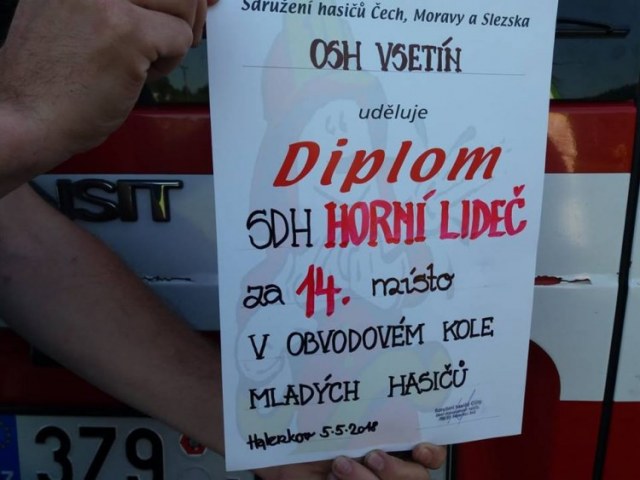 Sdružení hasičů Čech, Moravy a Slezska
OSH VSETÍN
uděluje
Diplom
SDH HORNÍ LIDEČ
za 14. místo
V OBVODOVÉM KOLE
MLADÝCH HASIČŮ
Halenkov 5.5.2018
NSIT
3Z9